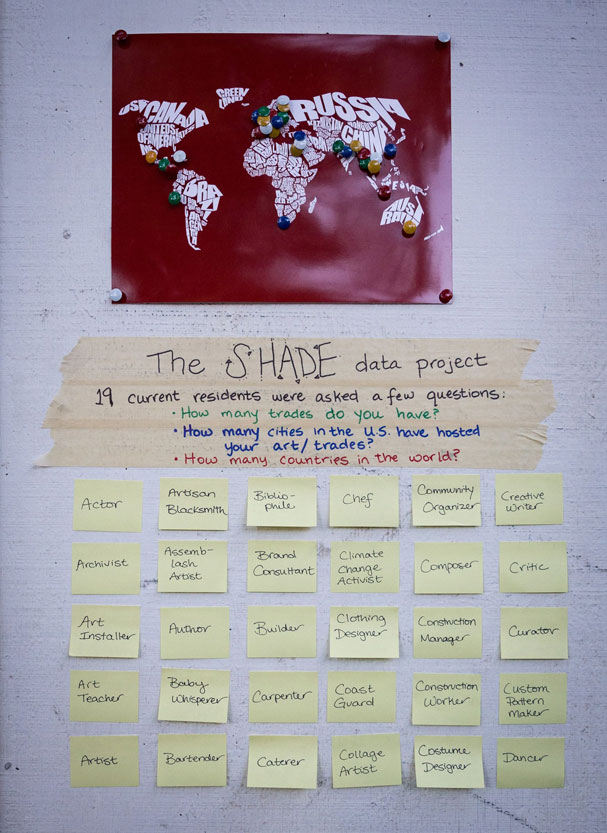 GREEN
LAND
RUSSIA
USA
CANADA
UNITED
CHINA
The SHADE data project
19 current residents were asked a few questions:
• How many trades do you have?
• How many cities in the U.S. have hosted
your art/trades?
• How many countries in the world?
Actor
Artisan
Blacksmith
Biblio-
phile
Chef
Community
Organizer
Creative
Writer
Archivist
Assemb-
lash
Artist
Brand
Consultant
Climate
Change
Activist
Composer
Critic
Art
Installer
Author
Builder
Clothing
Designer
Construction
Manager
Curator
Art
Teacher
Baby
Whisperer
Carpenter
Coast
Guard
Construction
Worker
Custom
Pattern
Maker
Artist
Bartender
Caterer
Collage
Artist
Costume
Designer
Dancer